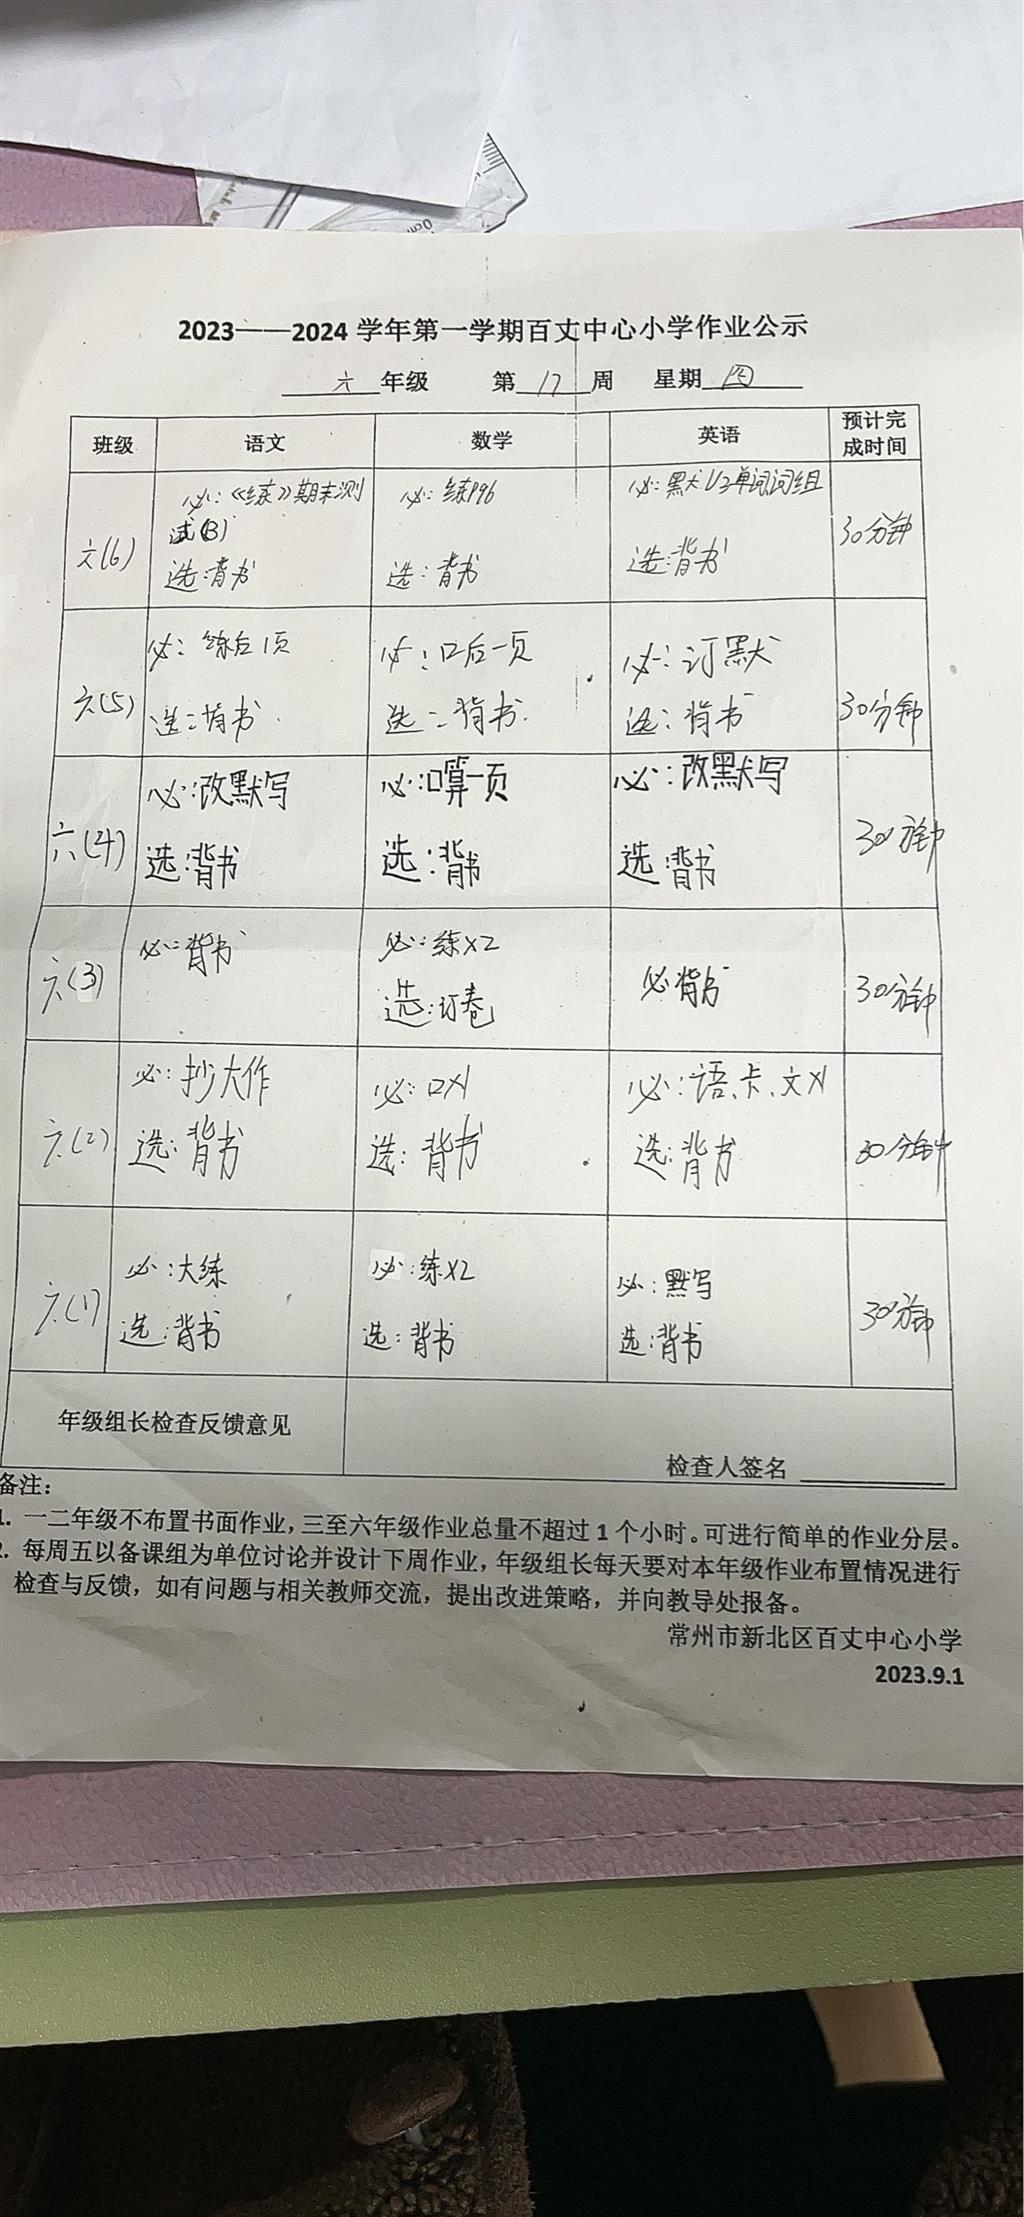 2023——2024 学年第一学期百丈中心小学作业公示
六 年级 第 17 周 星期 四
班级 语文 数学 英语 预计完成时间
六(6) 必:《练》期末测试(B) 必:练P96 必:默大U3单词词组 30分钟
选:背书 选:背书 选:背书
六(5) 必:练后1页 必:口后一页 必:订默 30分钟
选:背书 选:背书 选:背书
六(4) 必:改默写 必:口算一页 必:改默写 30分钟
选:背书 选:背书 选:背书
六(3) 必:背书 必:练x2 必背书 30分钟
选:订卷
六(2) 必:抄大作 必:口x1 必:语、卡、文x1 30分钟
选:背书 选:背书 选:背书
六(1) 必:大练 必:练x2 必:默写 30分钟
选:背书 选:背书 选:背书
年级组长检查反馈意见
检查人签名
备注:
1. 一二年级不布置书面作业,三至六年级作业总量不超过 1 个小时。可进行简单的作业分层。
2. 每周五以备课组为单位讨论并设计下周作业,年级组长每天要对本年级作业布置情况进行
检查与反馈,如有问题与相关教师交流,提出改进策略,并向教导处报备。
常州市新北区百丈中心小学
2023.9.1